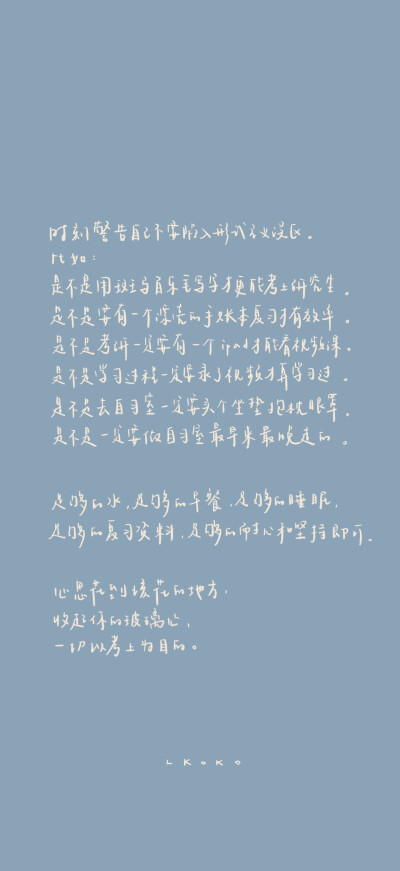 时刻警告自己不要陷入形式主义误区。
比如：
是不是用斑马百乐毛写字才更能考上研究生。
是不是要有一个漂亮的手账本复习才有效率。
是不是考研一定要有一个ipad才能看视频课。
是不是学习过程一定要录了视频才算学习过。
是不是去自习室一定要买个坐垫抱枕眼罩。
是不是一定要做自习室最早来最晚走的。
足够的水，足够的早餐，足够的睡眠，
足够的复习资料，足够的耐心和坚持即可。
心思花到该花的地方，
收起你的玻璃心，
一切以考上为目的。
LKOKO